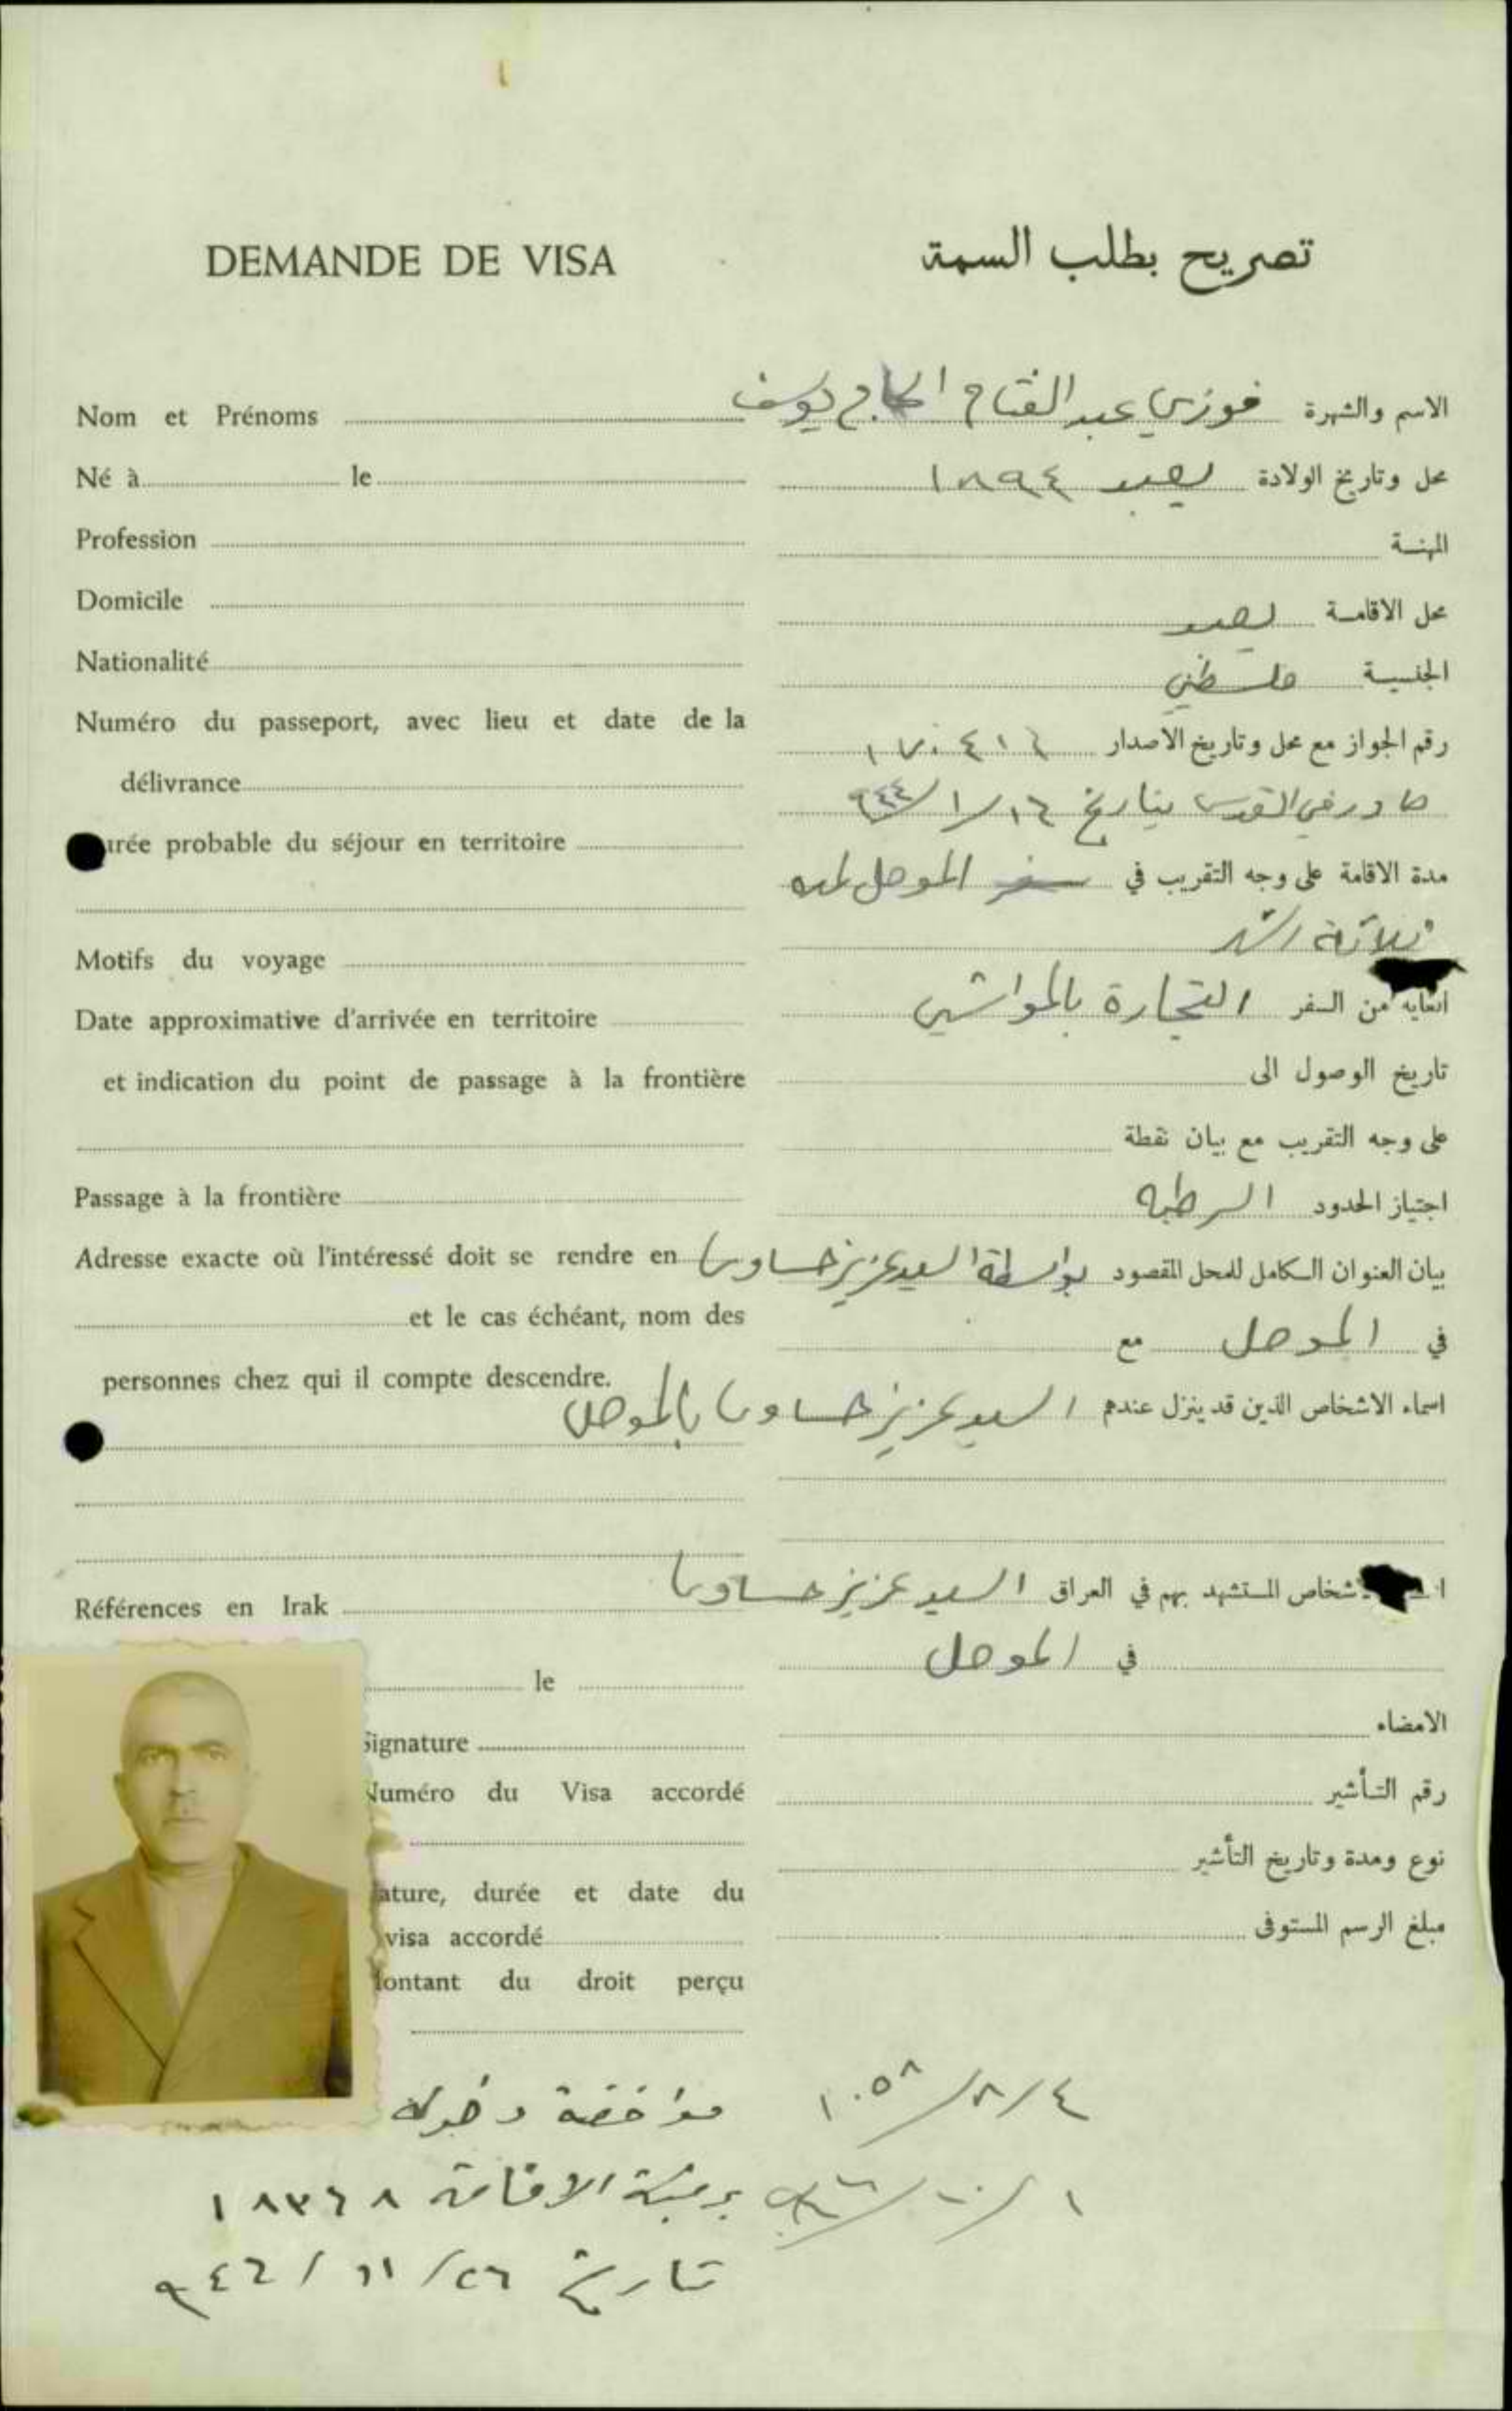 DEMANDE DE VISA
تصريح بطلب السمة
Nom et Prénoms
الاسم والشهرة فوزي عبد الفتاح الحاج يوسف
Né à le
محل وتاريخ الولادة يعبد ١٨٩٤
Profession
المهنة
Domicile
محل الاقامة يعبد
Nationalité
الجنسية فلسطيني
Numéro du passeport, avec lieu et date de la
délivrance
رقم الجواز مع محل وتاريخ الاصدار
صادر في القدس بتاريخ ١٦/١/
urée probable du séjour en territoire
مدة الاقامة على وجه التقريب في سفر الموصل لمده
ثلاثة اشهر
Motifs du voyage
الغاية من السفر التجارة بالمواشي
Date approximative d'arrivée en territoire
et indication du point de passage à la frontière
تاريخ الوصول الى
على وجه التقريب مع بيان نقطة
Passage à la frontière
اجتياز الحدود الرطبه
Adresse exacte où l'intéressé doit se rendre en
et le cas échéant, nom des
personnes chez qui il compte descendre.
بيان العنوان الكامل للمحل المقصود بواسطة السيد عزيز حساوي
في الموصل مع
اسماء الاشخاص الذين قد ينزل عندهم السيد عزيز حساوي بالموصل
Références en Irak
شخاص المستشهد بهم في العراق السيد عزيز حساوي
في الموصل
le
Signature
الامضاء
Numéro du Visa accordé
رقم التأشير
ature, durée et date du
visa accordé
نوع ومدة وتاريخ التأشير
ontant du droit perçu
مبلغ الرسم المستوفى
١٠٥٨ ٤/٨/
موافقة دخوله
برقية الاقامة ١٨٣٦٨
تاريخ ٢٦/١١/٩٤٦